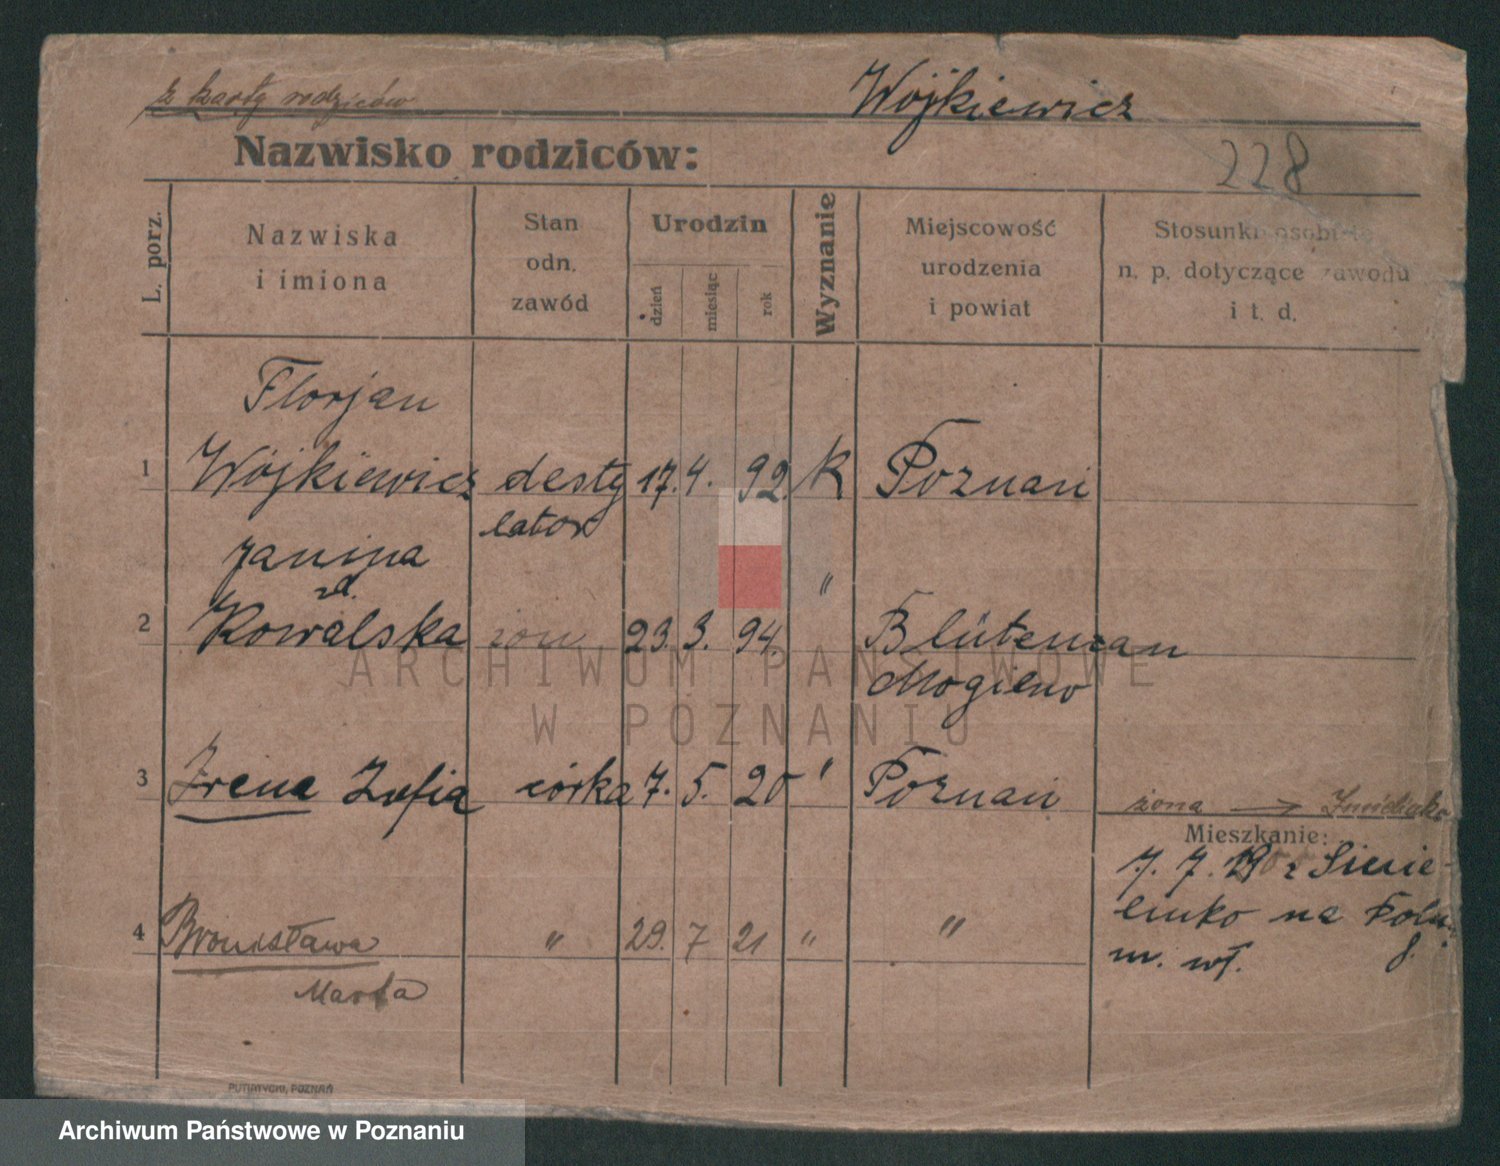 z karty rodziców
Wójkiewicz
Nazwisko rodziców:
228
L. porz.
Nazwiska
i imiona
Stan
odn.
zawód
Urodzin
dzień
miesiąc
rok
Wyznanie
Miejscowość
urodzenia
i powiat
Stosunki osobiste
n. p. dotyczące zawodu
i t. d.
Florjan
1 Wójkiewicz desty 17. 4. 92. K Poznań
lator
Janina
zd. "
2 Kowalska żon 23. 3. 94.
Mogilno
3 Irena Zofia córka 7. 5. 20 " Poznań
żona →
Mieszkanie:
7. 7. z
na
4 Bronisława " 29. 7 21 " "
m. wł.
Marta
PUTIATYCKI, POZNAŃ
ARCHIWUM PAŃSTWOWE
W POZNANIU
Archiwum Państwowe w Poznaniu